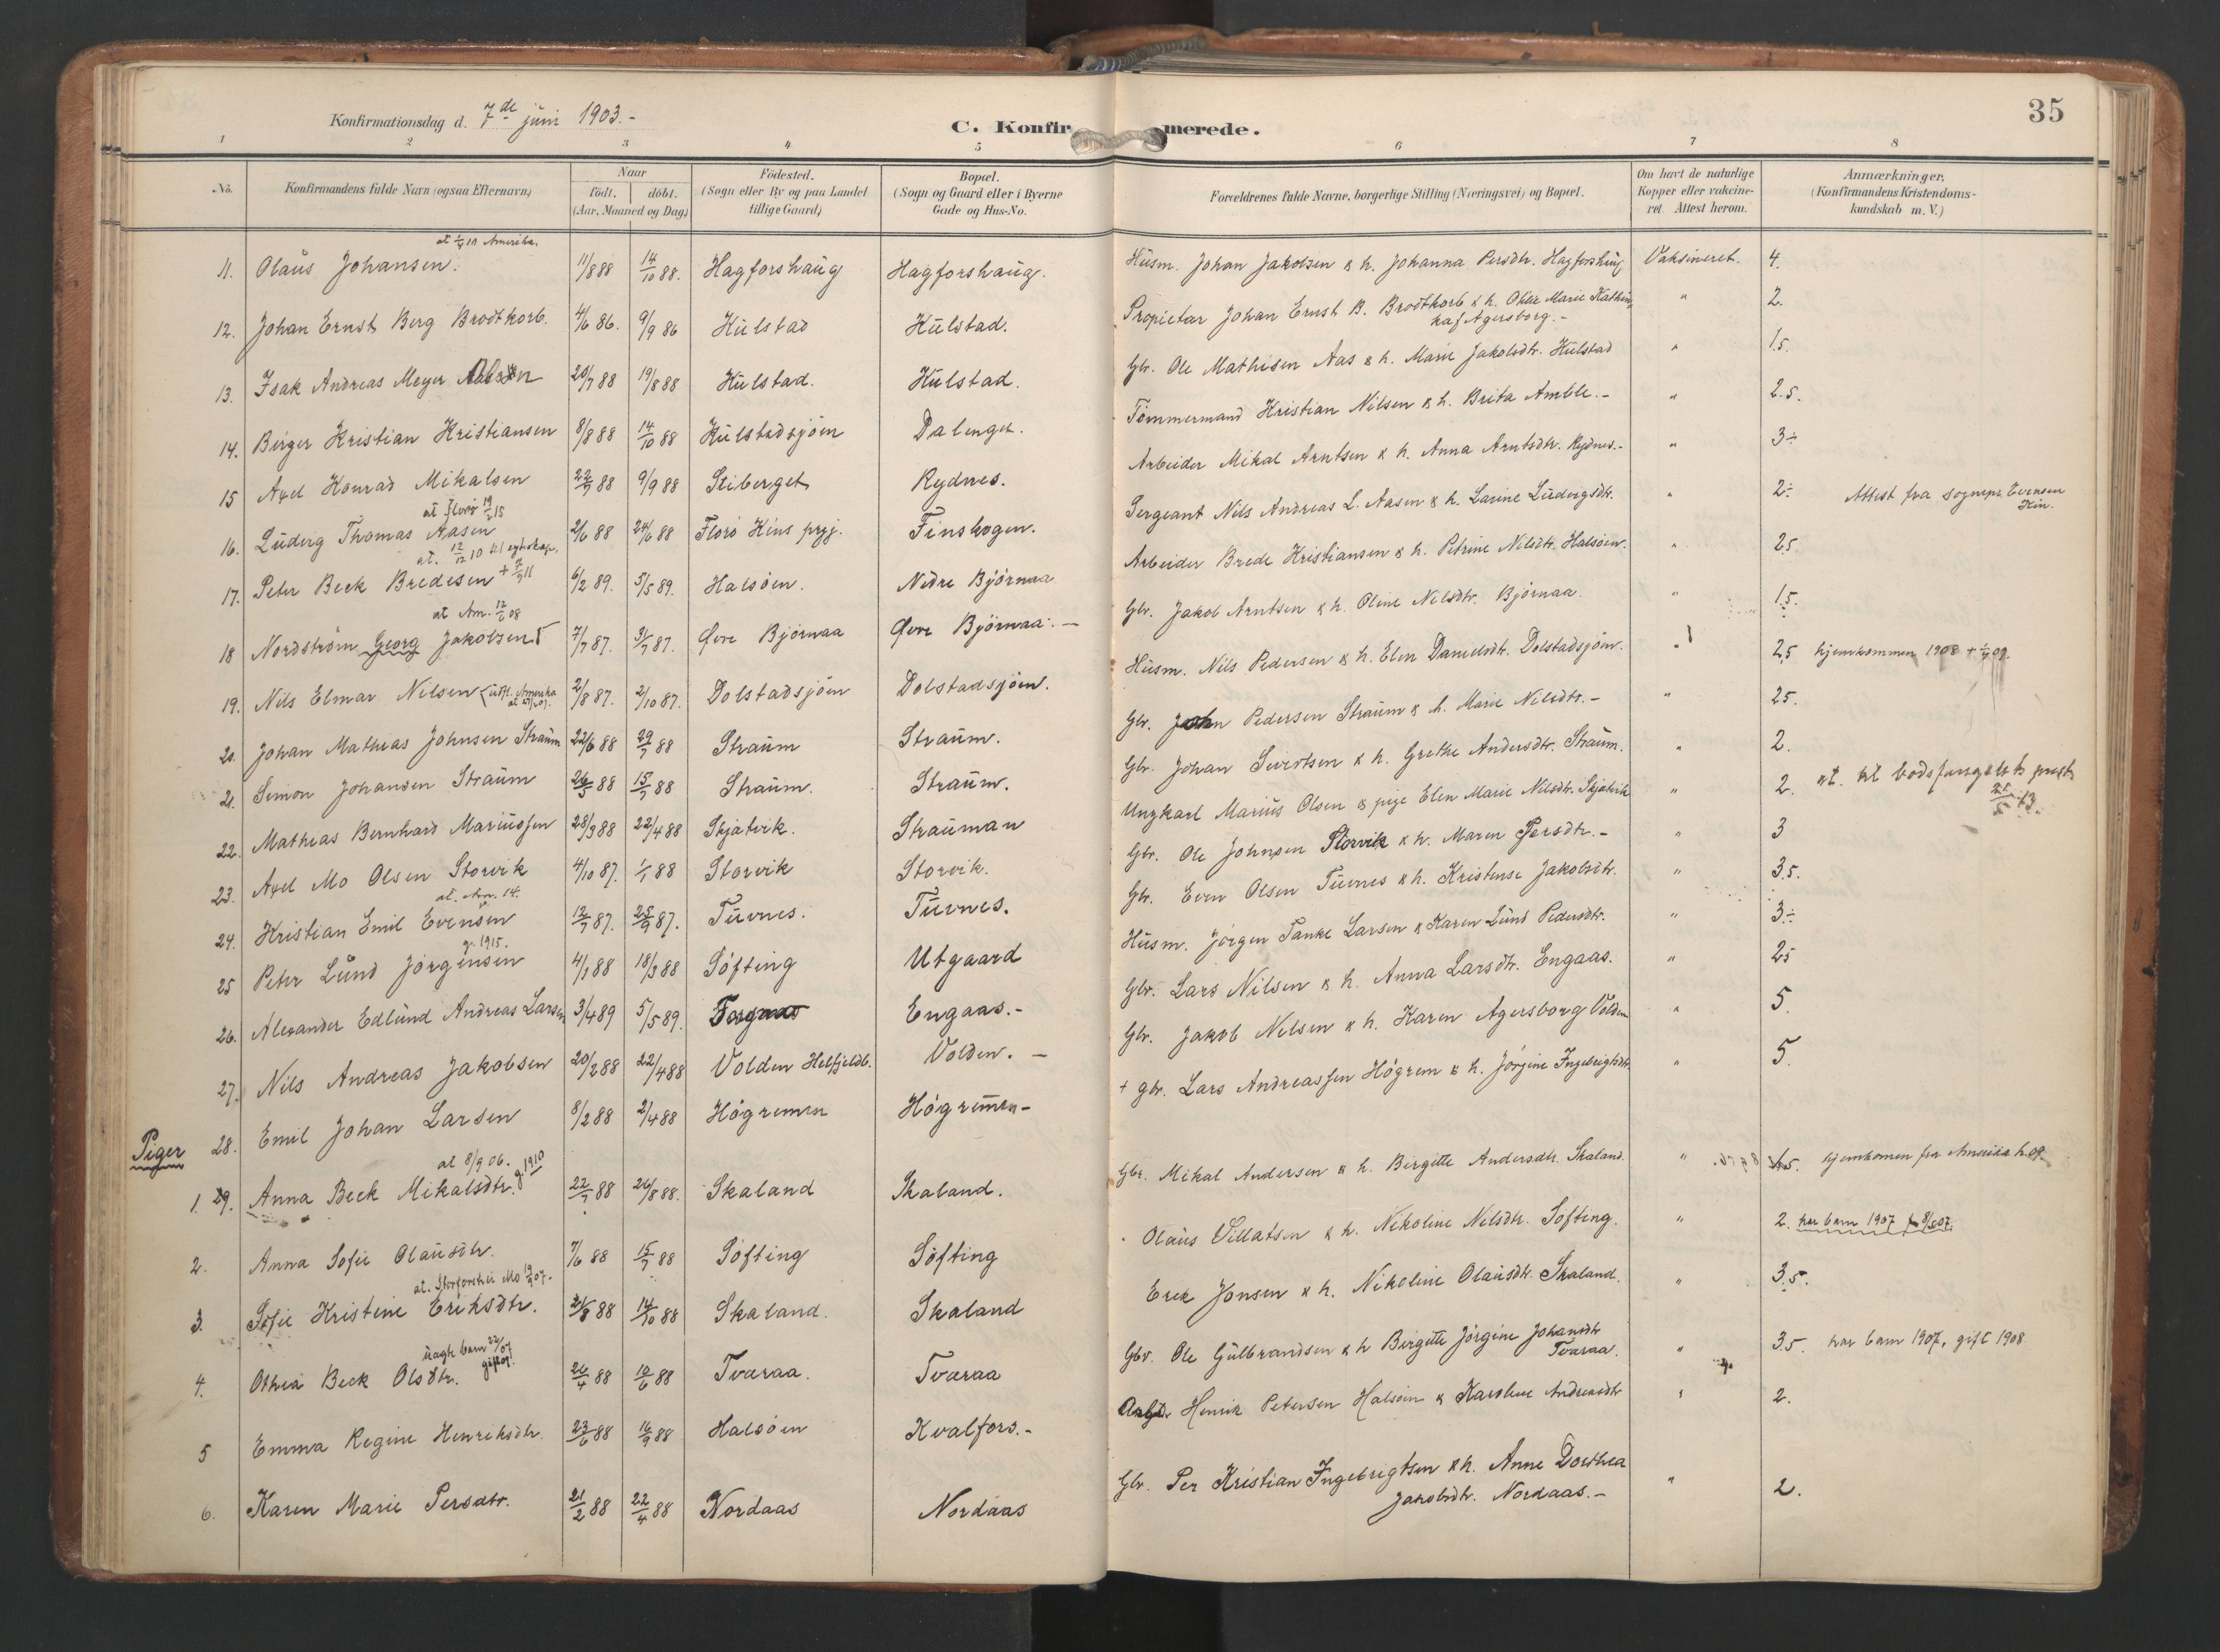 Konfirmationsdag d. 7de juni 1903.-
C. Konfirmerede.
35
1 2 3 4 5 6 7 8
No. Konfirmandens fulde Navn (ogsaa Efternavn) Naar født. døbt. (Aar, Maaned og Dag) Födested. (Sogn eller By og paa Landet tillige Gaard) Bopæl. (Sogn og Gaard eller i Byerne Gade og Hus-No. Forældrenes fulde Navne, borgerlige Stilling (Næringsvei) og Bopæl. Om havt de naturlige Kopper eller vakcineret. Attest herom. Anmærkninger, (Konfirmandens Kristendomskundskab m. V.)
11. Olaus Johansen. 11/8 88 14/10 88. Hagforshaug Hagforshaug. Husm. Johan Jakobsen & h. Johanna Persdtr. Hagforshaug Vaksineret. 4.
12. Johan Ernst Berg Brodtkorb. 4/6 86. 9/9 86 Kulstad Kulstad. Propietær Johan Ernst B. Brodtkorb & h. Marie
Agersborg.- " 2.
13. Isak Andreas Meyer 20/7 88 19/8 88 Kulstad. Kulstad. Gbr. Ole Mathisen Aas & h. Marie Jakobsdtr. Kulstad " 1.5.
14. Birger Kristian Kristiansen 8/8 88 14/10 88 Kulstadsjøen Dalenget. Tømmermand Kristian Nilsen & h. Brita Amble.- " 2.5.
15 Axel Konrad Mikalsen 22/7 88 9/9 88 Stiberget Rydnes. Arbeider Mikal Arntsen & h. Anna Arntsdtr. Rydnes.- " 3÷
at Florø 19/2 15
16. Luderg Thomas Aasen 2/6 88 24/6 88 Florø Kins prgj. Finskogen. Sergeant Nils Andreas L. Aasen & h. Larine Ludergsdtr. " 2÷ Attest fra sognepr. Evensen
Kin.
17. Peter Beck Bredesen 6/2 89. 5/5 89. Halsøen. Nedre Bjørnaa Arbeider Brede Kristiansen & h. Petrine Nilsdtr. Halsøen. " 2.5
at Am. 12/5 08
18 Nordstrøm Georg Jakobsen 7/7 87. 31/7 87. Øvre Bjørnaa Øvre Bjørnaa.- Gbr. Jakob Arntsen & h. Oline Nilsdtr. Bjørnaa. " 1.5.
19. Nils Elmar Nilsen 2/8 87. 2/10 87. Dolstadsjøen Dolstadsjøen. Husm. Nils Pedersen & h. Elen Danielsdtr. Dolstadsjøen. " 2,5 hjemkommen 1908
20. Johan Mathias Johnsen Straum 22/6 88 29/7 88 Straum Straum. Gbr. John Pedersen Straum & h. Marie Nilsdtr.- " 25.
21. Simon Johansen Straum 26/5 88 15/7 88 Straum. Straum. Gbr. Johan Sivertsen & h. Grethe Andersdtr. Straum. " 2.
22. Mathias Bernhard Mariussen 28/3 88 22/4 88 Skjatvik. Strauman Ungkarl Marius Olsen & pige Elen Marie Nilsdtr. Skjatvik " 2. at. til bodsfængslets prest
23. Axel Mo Olsen Storvik 4/10 87. 1/1 88 Storvik Storvik. Gbr. Ole Johnsen Storvik & h. Maren Persdtr.- " 3
at. Am. 14.
24. Kristian Emil Evensen 12/7 87. 25/9 87. Tuvnes. Tuvnes. Gbr. Even Olsen Tuvnes & h. Kristense Jakobsdtr. " 3.5.
g. 1915.
25 Peter Lund Jørgensen 4/1 88 18/3 88 Søfting Utgaard Husm. Jørgen Tanke Larsen & Karen Lund Pedersdtr. " 3÷
26. Alexander Edlund Andreas Larsen 3/4 89 5/5 89. Engaas.- Gbr. Lars Nilsen & h. Anna Larsdtr. Engaas. " 25
27. Nils Andreas Jakobsen 20/2 88 22/4 88 Volden Helfjeldb. Volden.- Gbr. Jakob Nilsen & h. Karen Agersborg Volden " 5.
28. Emil Johan Larsen 8/2 88 2/4 88 Høgremen Høgremen- + gbr. Lars Andreassen Høgrem & h. Jørgine Ingebrigtsdtr. " 5.
Piger
at 8/9 06. g. 1910
1. 29. Anna Beck Mikalsdtr. 22/7 88 26/8 88. Skaland Skaland. Gbr. Mikal Andersen & h. Birgitte Andersdtr. Skaland. " 1.5. hjemkomen fra Amerika h. 09.
2. Anna Sofie Olausdtr. 7/6 88 15/7 88 Søfting Søfting Olaus Sillatsen & h. Nikoline Nilsdtr. Søfting. " 2. har barn 1907
at. Storforshei Mo 19/2 07.-
3. Sofie Kristine Eriksdtr. 21/8 88 14/10 88 Skaland. Skaland Erik Jonsen & h. Nikoline Olausdtr. Skaland. " 3.5.
uagte barn 22/07
gift 08.
4. Othea Beck Olsdtr. 26/4 88 10/6 88 Tværaa. Tværaa Gbr. Ole Gulbrandsen & h Birgitte Jørgine Johansdtr
Tværaa. " 3.5. har barn 1907, gift 1908
5 Emma Regine Henriksdtr. 23/6 88 16/9 88 Halsøen Kvalfors.- Henrik Petersen Halsøen & Karoline Andreasdtr " 2.
6. Karen Marie Persdtr. 21/2 88 22/4 88 Nordaas Nordaas Gbr. Per Kristian Ingebrigtsen & h. Anne Dorthea
Jakobsdtr. Nordaas.- " 2.